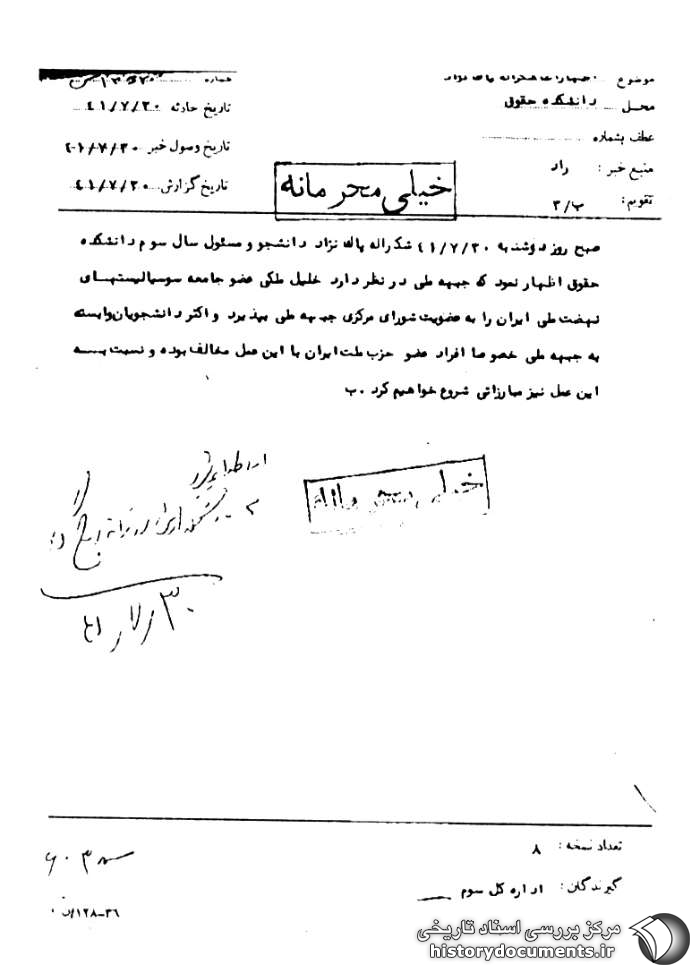 موضوع اظهارات شکراله پاک نژاد
شماره
محل دانشکده حقوق
تاریخ حادثه ۴۱/۷/۳۰
عطف بشماره
تاریخ وصول خبر ۴۱/۷/۳۰
منبع خبر : راد
تاریخ گزارش ۴۱/۷/۳۰
تقویم : ب/۳
خیلی محرمانه
صبح روز دوشنبه ۴۱/۷/۳۰ شکراله پاک نژاد دانشجو و مسئول سال سوم دانشکده
حقوق اظهار نمود که جبهه ملی در نظر دارد خلیل ملکی عضو جامعه سوسیالیستهای
نهضت ملی ایران را به عضویت شورای مرکزی جبهه ملی بپذیرد و اکثر دانشجویان وابسته
به جبهه ملی خصوصا افراد عضو حزب ملت ایران با این عمل مخالف بوده و نسبت به
این عمل نیز مبارزاتی شروع خواهیم کرد . ب
خیلی محرمانه
تعداد نسخه : ۸
گیرندگان : اداره کل سوم
۱۲۸-۳۶
مرکز بررسی اسناد تاریخی
historydocuments.ir